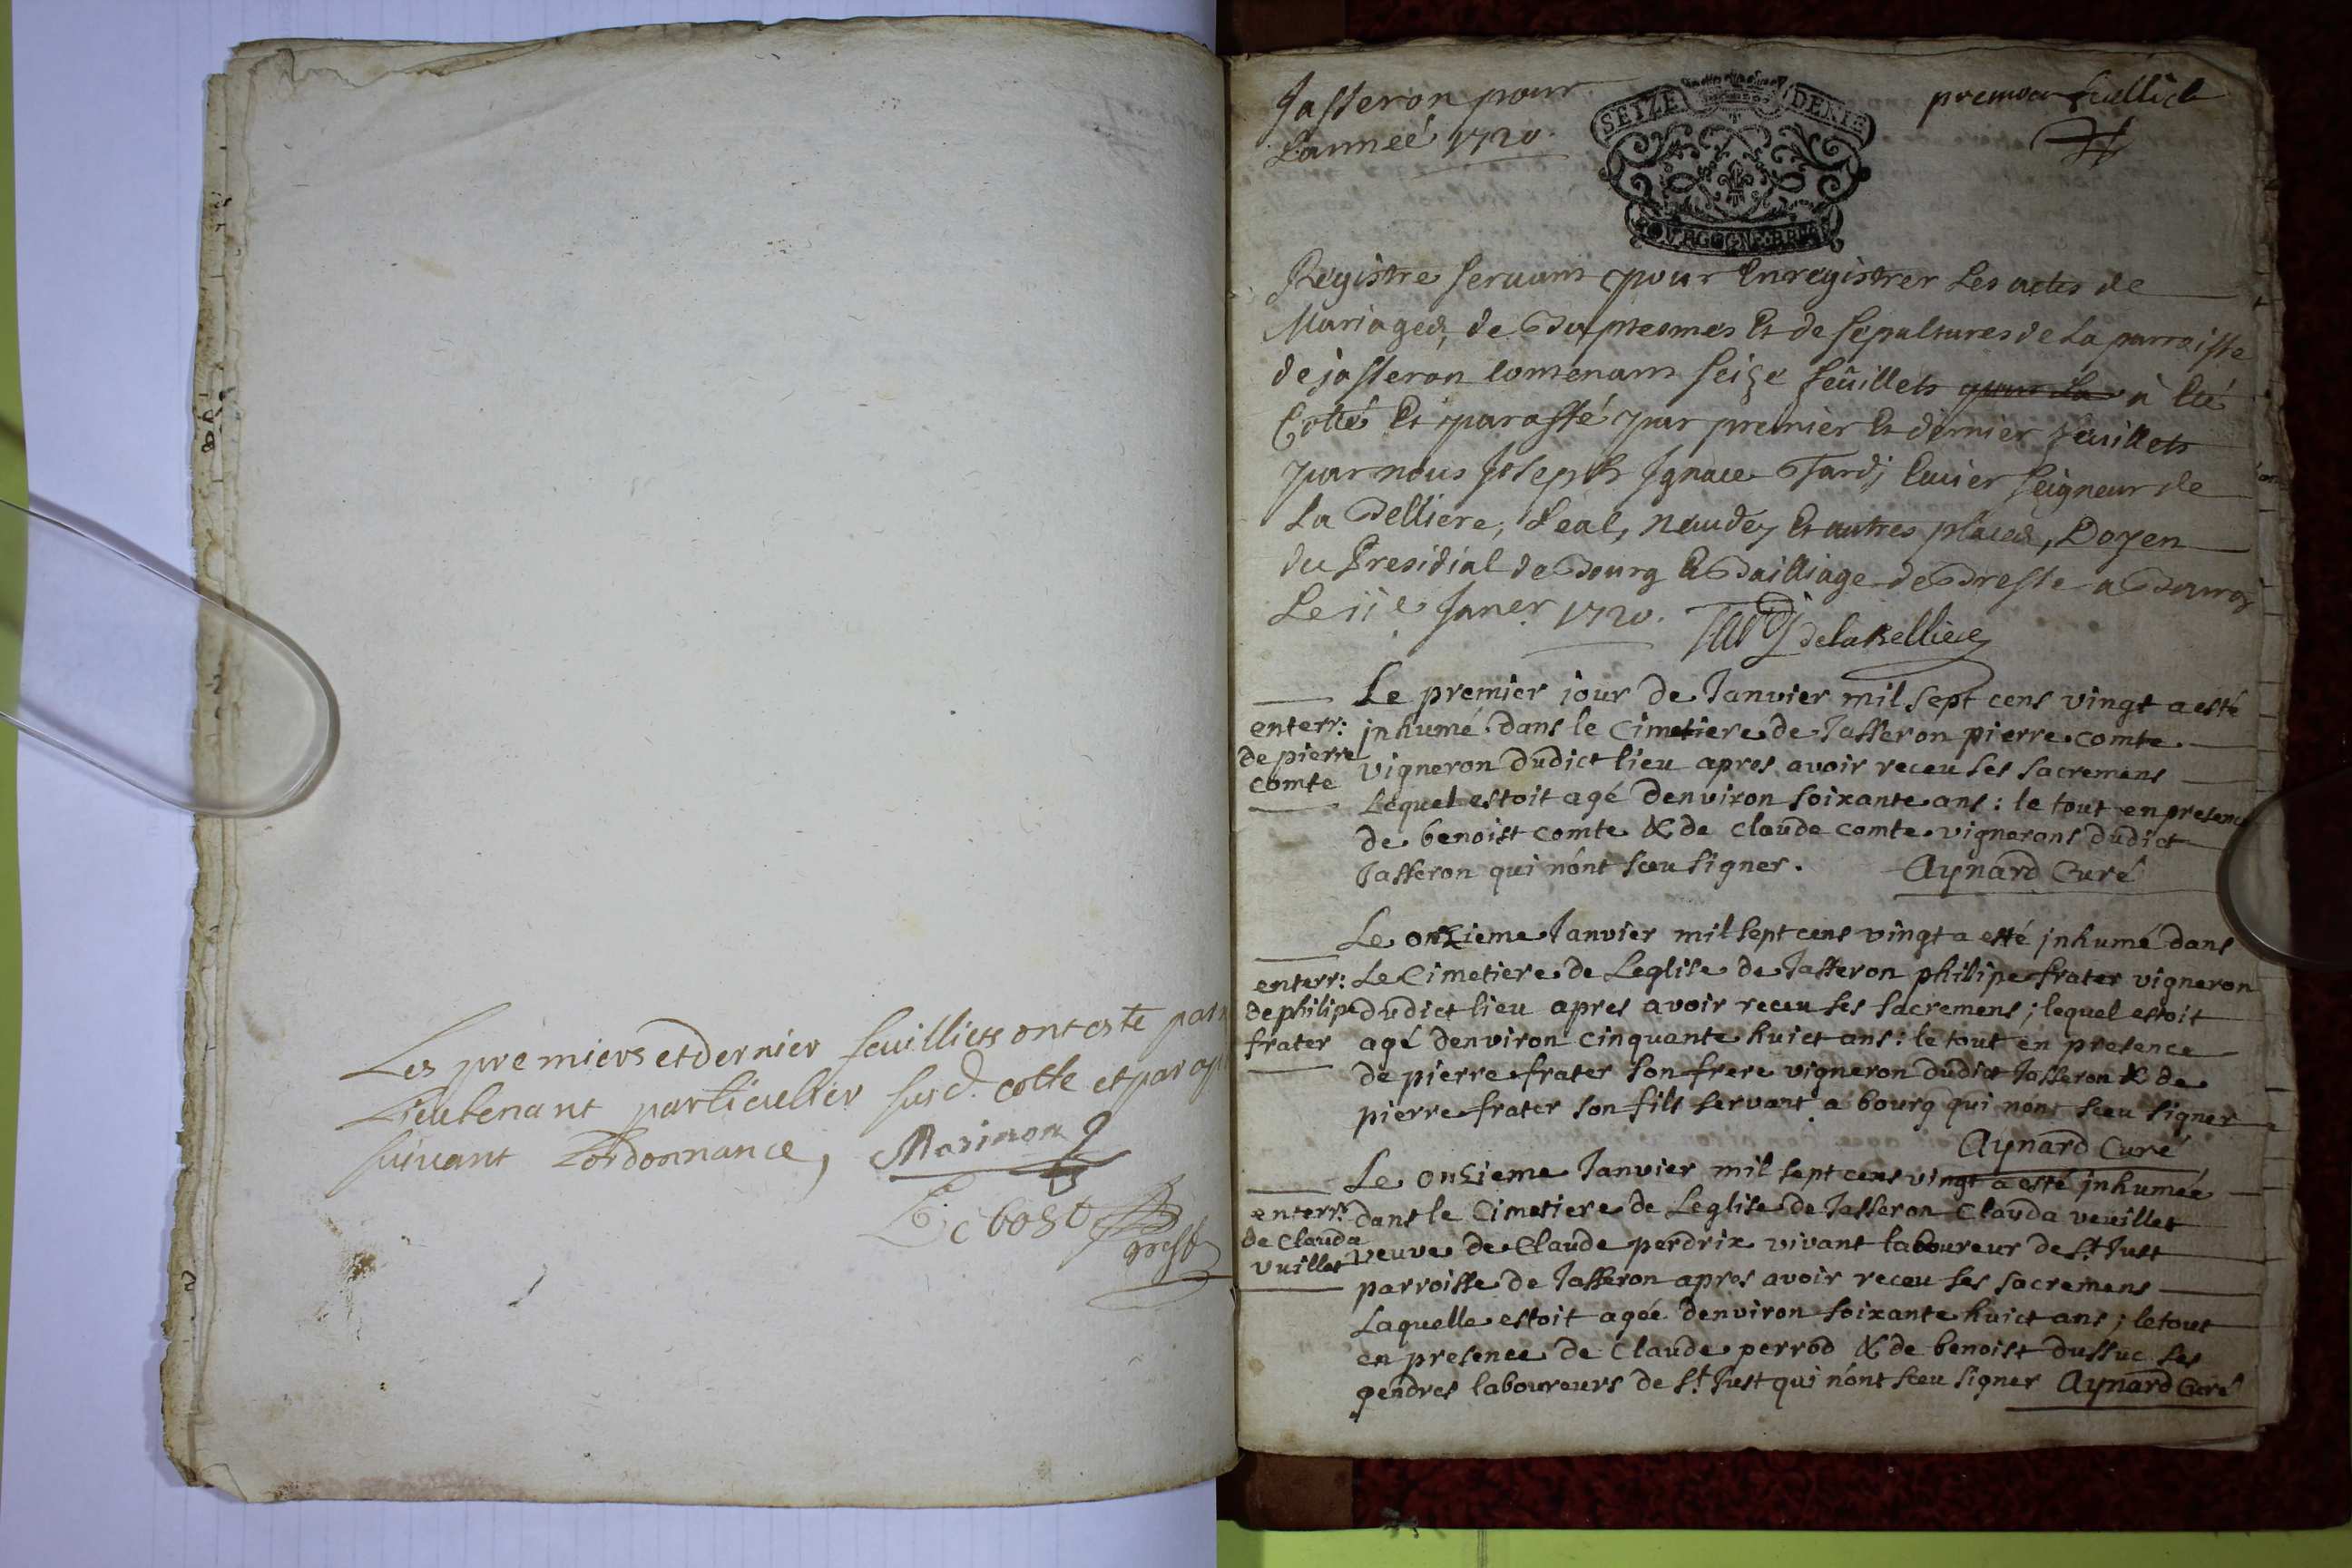 Les premiers et dernier feuilliets ont este par n
Lieutenant particullier susd. cotte et parap
suivant Lordonnance, Marinon
Chbost
greff
Jasseron pour
Lanneé 1720.
SEIZE DENIE
BOURGOGNE BRESSE
premier feulliet
Registre servant pour Enregistrer Les actes de
Mariages, de Baptesmes Et de sepultures de La parroisse
de jasseron Contenant seize feüillets pour La à Eté
Cotté Et paraffé par premier Et dernier feuillets
par nous Joseph Ignace Tardj Ecuier seigneur de
La Belliere, Leal, Naudey Et autres places, Doyen
du Presidial de Bourg Et Bailliage de Bresse a Bourg
Le 11e Janer. 1720. Tardj de la Belliere
Le premier jour de Janvier mil sept cens vingt a esté
enterr: jnhumé dans le Cimetiere de Jasseron pierre comte
de pierre
comte vigneron dudict lieu apres avoir receu ses sacremens
Lequel estoit agé denviron soixante ans : le tout en presence
de benoist comte & de claude comte vignerons dudict
Jasseron qui nónt sceu signer. Aynard Curé
Le onzieme Janvier mil sept cens vingt a esté jnhumé dans
enterr: Le Cimetiere de Leglise de Jasseron philipe frater vigneron
de philipe dudict lieu apres avoir receu ses sacremens ; lequel estoit
frater agé denviron cinquante huict ans : le tout en presence
de pierre frater son frere vigneron dudict Jasseron & de
pierre frater son fils servant a bourg qui nónt sceu signer
Aynard Curé
Le onzieme Janvier mil sept cens vingt a esté jnhumée
enterr: dans le Cimetiere de Leglise de Jasseron Clauda veuillet
de Clauda
vuillet veuve de Claude perdrix vivant laboureur de St. Just
parroisse de Jasseron apres avoir receu ses sacremens
Laquelle estoit agée denviron soixante huict ans ; le tout
en presence de Claude perrod & de benoist dussuc ses
gendres laboureurs de St. Just qui nónt sceu signer Aynard Curé